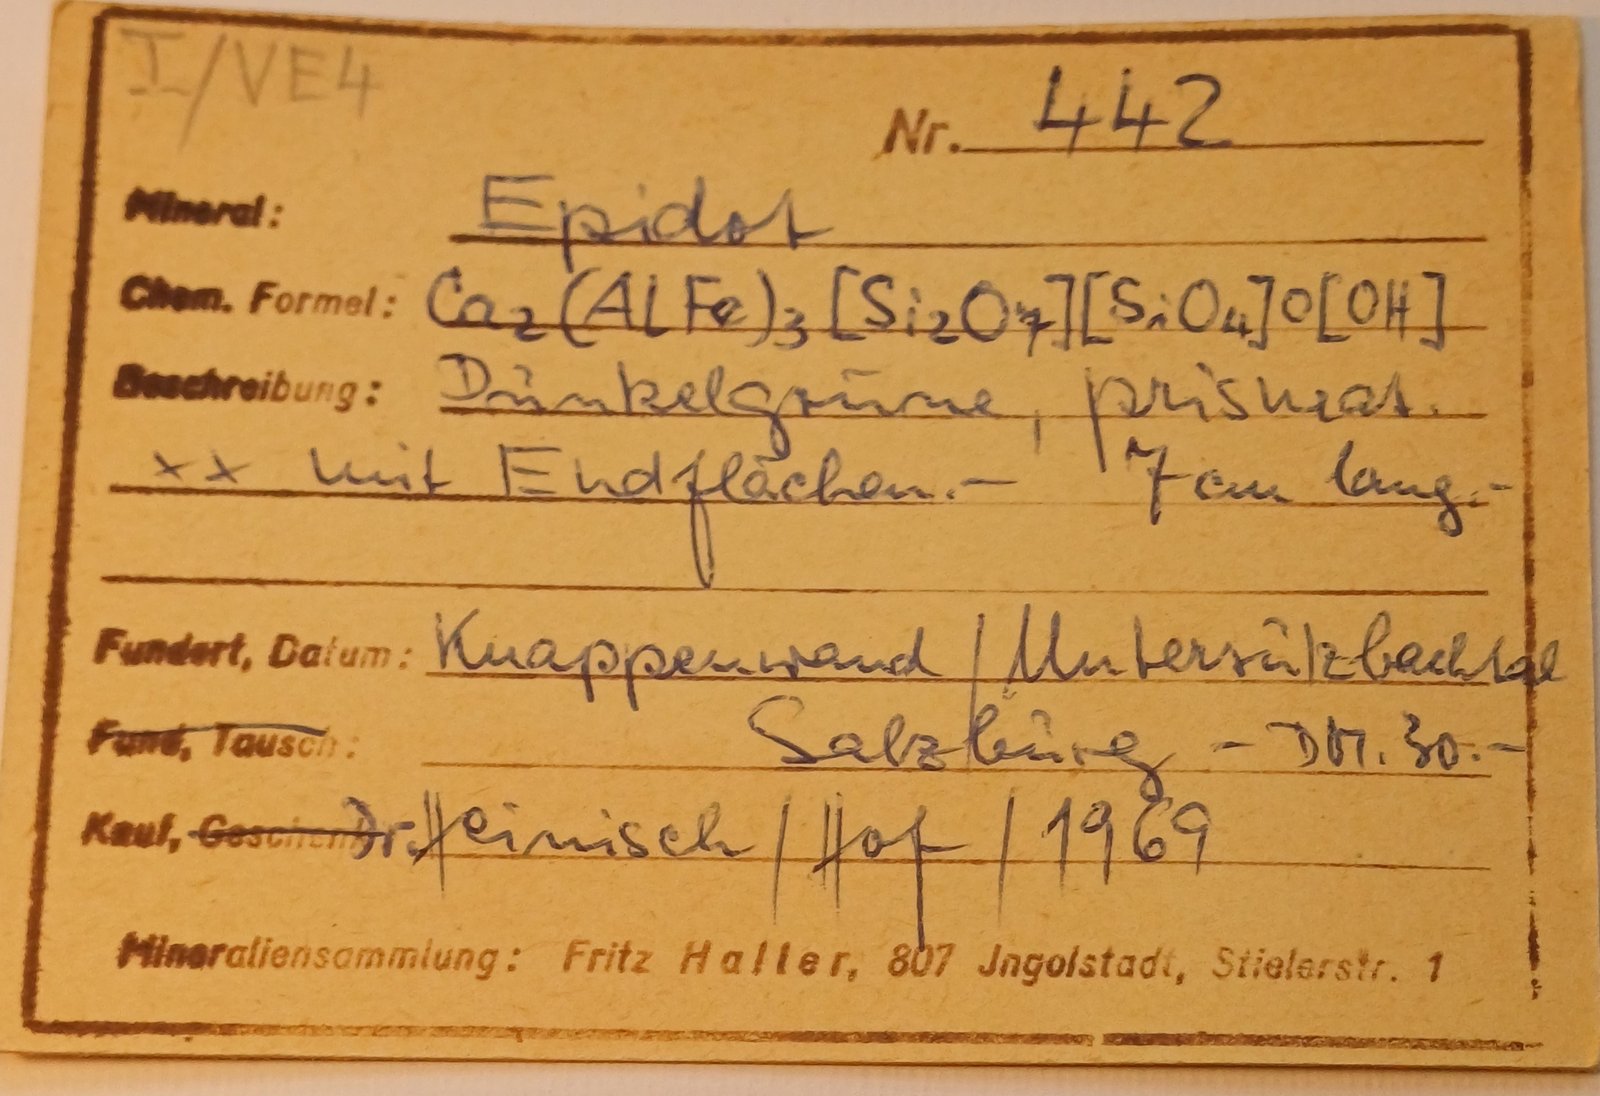 I/VE4
Nr. 442
Mineral: Epidot
Chem. Formel: Ca₂(AlFe)₃[Si₂O₇][SiO₄]O[OH]
Beschreibung: Dunkelgrüne, prismat.
xx mit Endflächen.- 7 cm lang.-
Fundort, Datum: Knappenwand / Untersulzbachtal
Fund, Tausch: Salzburg - DM. 30.-
Kauf, Geschenk Dr. Heinisch / Hof / 1969
Mineraliensammlung: Fritz Haller, 807 Jngolstadt, Stielerstr. 1